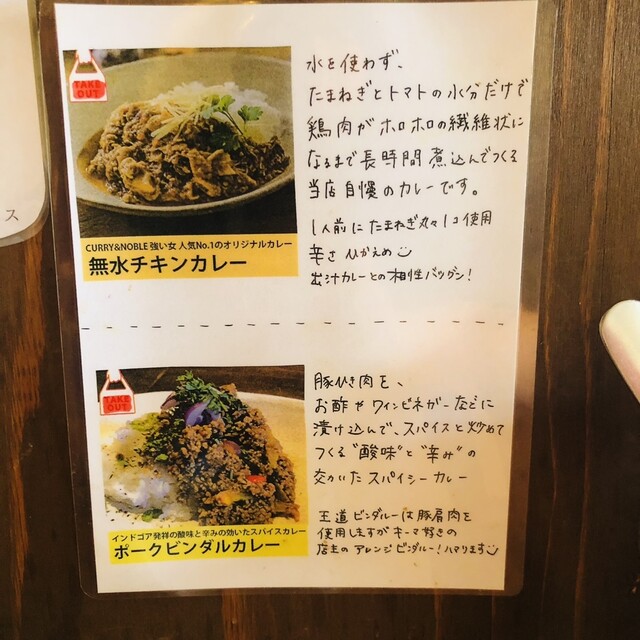 TAKE
OUT
水を使わず、
たまねぎとトマトの水分だけで
鶏肉がホロホロの繊維状に
なるまで長時間煮込んでつくる
当店自慢のカレーです。
1人前にたまねぎ丸々1コ使用
辛さひかえめ
出汁カレーとの相性バツグン!
CURRY&NOBLE 強い女 人気No.1のオリジナルカレー
無水チキンカレー
ス
TAKE
OUT
豚ひき肉を、
お酢やワインビネガーなどに
漬け込んで、スパイスと炒めて
つくる"酸味"と"辛み"の
効いたスパイシーカレー
王道ビンダルーは豚肩肉を
使用しますがキーマ好きの
店主のアレンジビンダルー!ハマります
インドゴア発祥の酸味と辛みの効いたスパイスカレー
ポークビンダルカレー